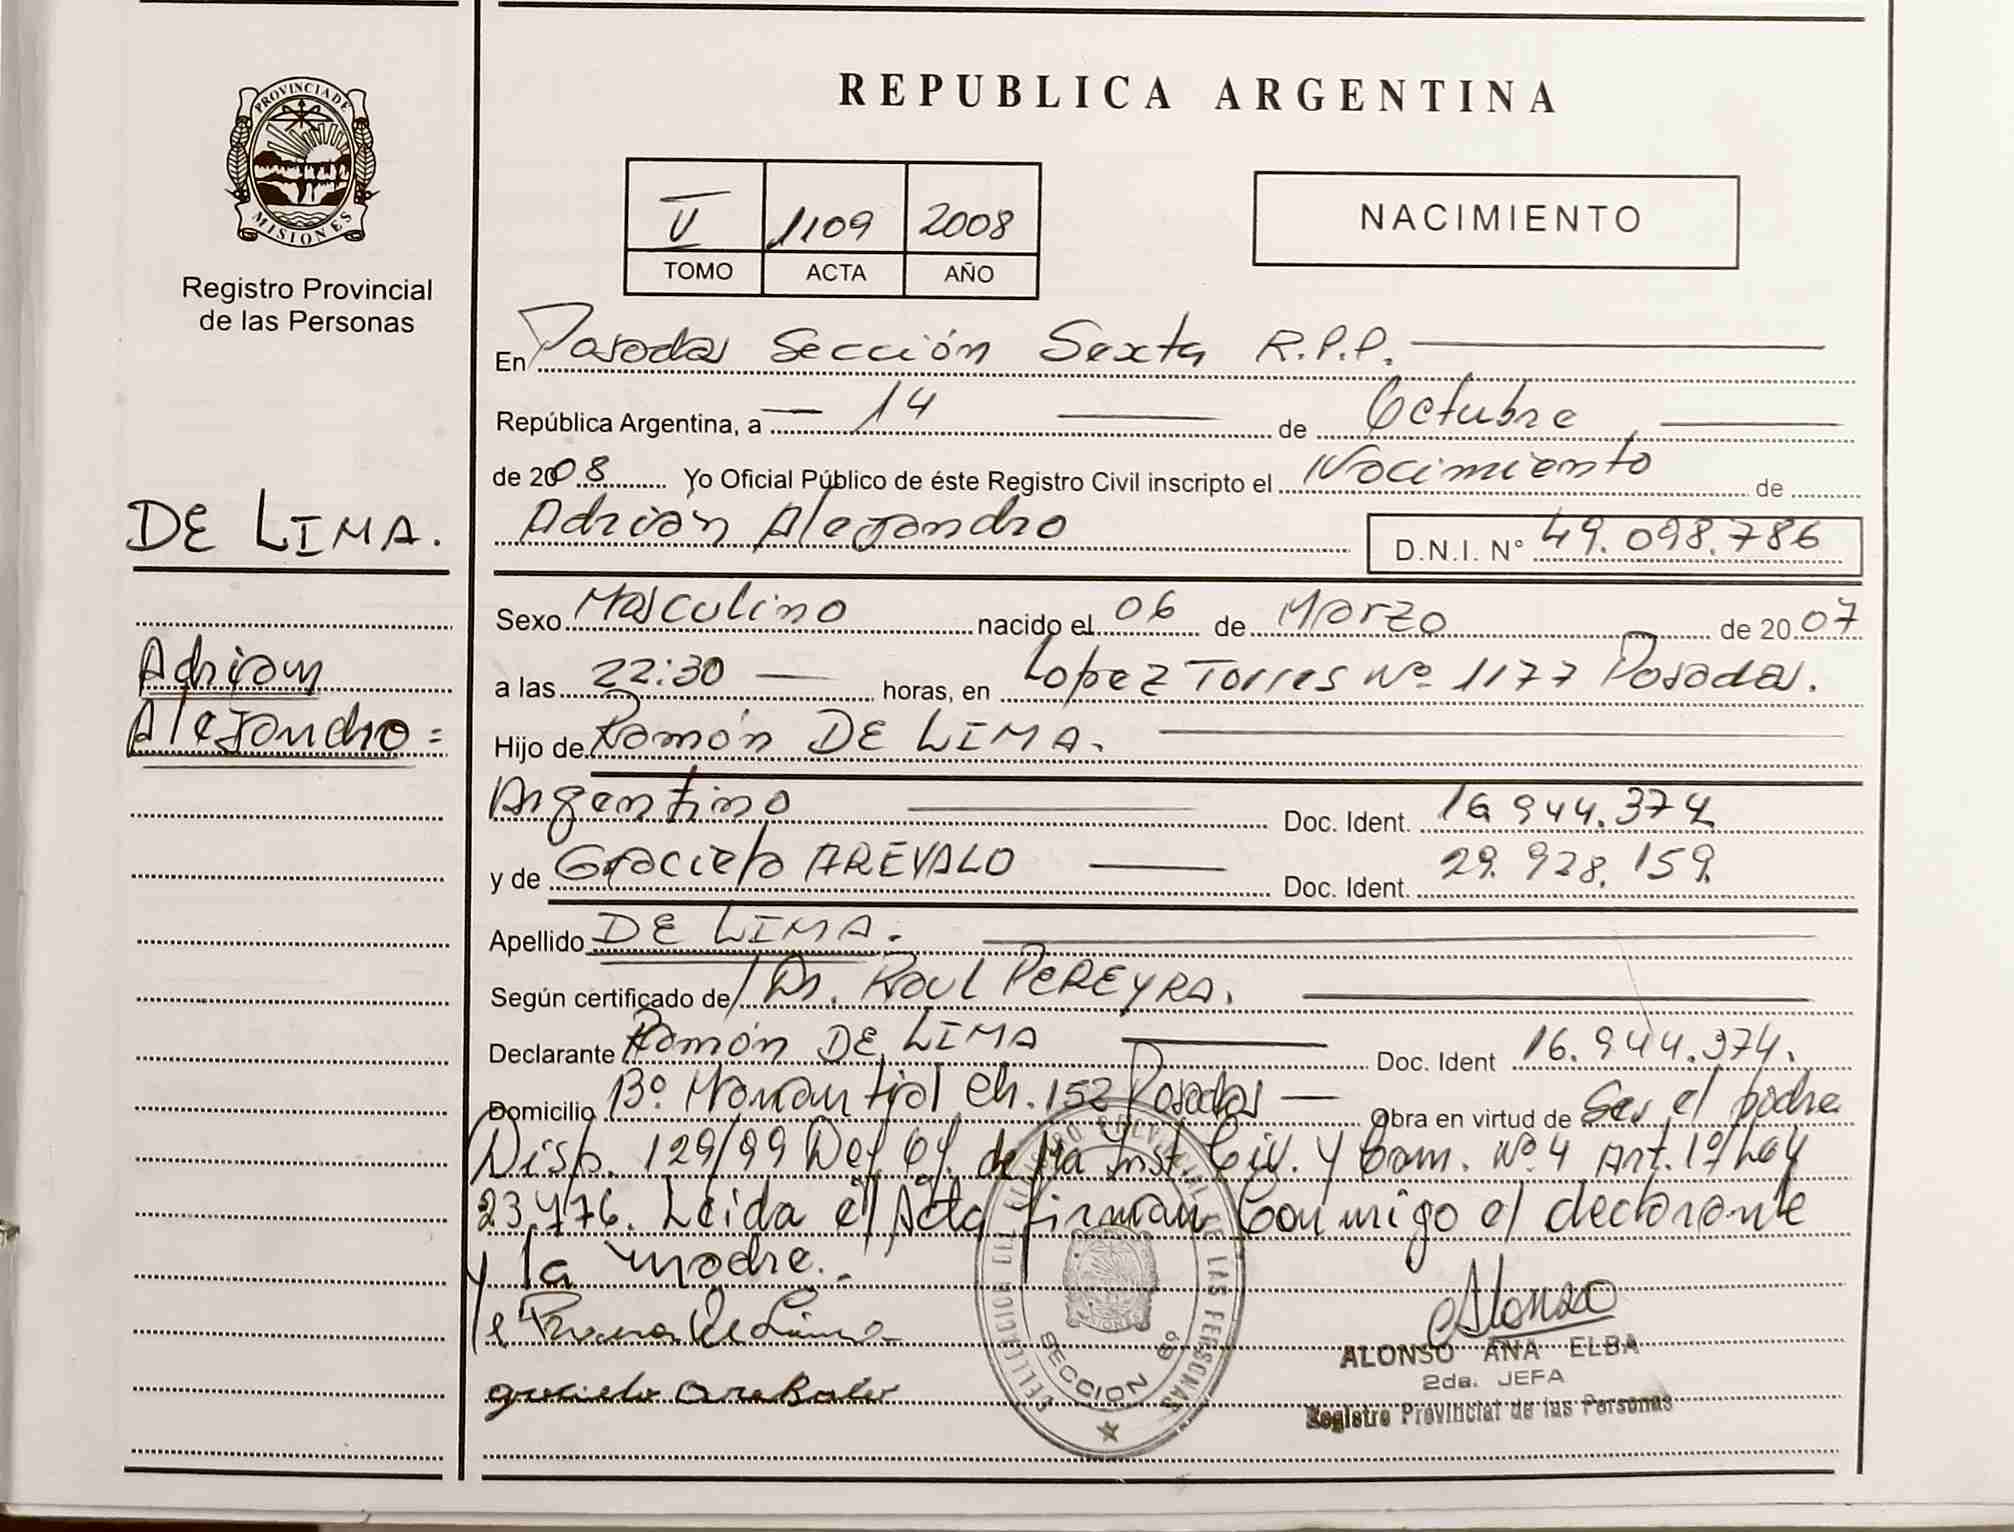 PROVINCIA DE MISIONES
Registro Provincial
de las Personas
DE LIMA.
Adrian
Alejandro =
REPUBLICA ARGENTINA
V 1109 2008
TOMO ACTA AÑO
NACIMIENTO
En Posadas Sección Sexta R.P.P.
República Argentina, a 14 de Octubre
de 2008 Yo Oficial Público de éste Registro Civil inscripto el Nacimiento de
Adrian Alejandro D.N.I. N° 49.098.786
Sexo Masculino nacido el 06 de Marzo de 2007
a las 22:30 horas, en Lopez Torres Nº 1177 Posadas.
Hijo de Ramón DE LIMA.
Argentino Doc. Ident. 16.944.374
y de Graciela AREVALO Doc. Ident. 29.928.159.
Apellido DE LIMA.
Según certificado de Dr. Raul PEREYRA.
Declarante Ramón DE LIMA Doc. Ident 16.944.374.
Domicilio Bº. Manantial Ch. 152 Posadas Obra en virtud de Ser el padre
Disp. 129/99 Def. Of. de 1ra Inst. Civ. y Com. Nº 4 Art. 1º Ley
23.776. Leida el Acta firman Conmigo el declarante
y la madre.
Alonso
ALONSO ANA ELBA
2da. JEFA
Registro Provincial de las Personas
REGISTRO PROVINCIAL DE LAS PERSONAS
SECCION 6ª
MISIONES